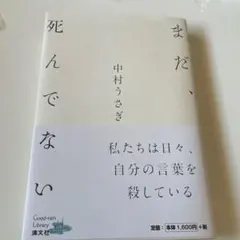 まだ、
死んでない
中村うさぎ
私たちは日々、
自分の言葉を
殺している
定価：本体1,600円＋税
Good-rain
Library
潮文社